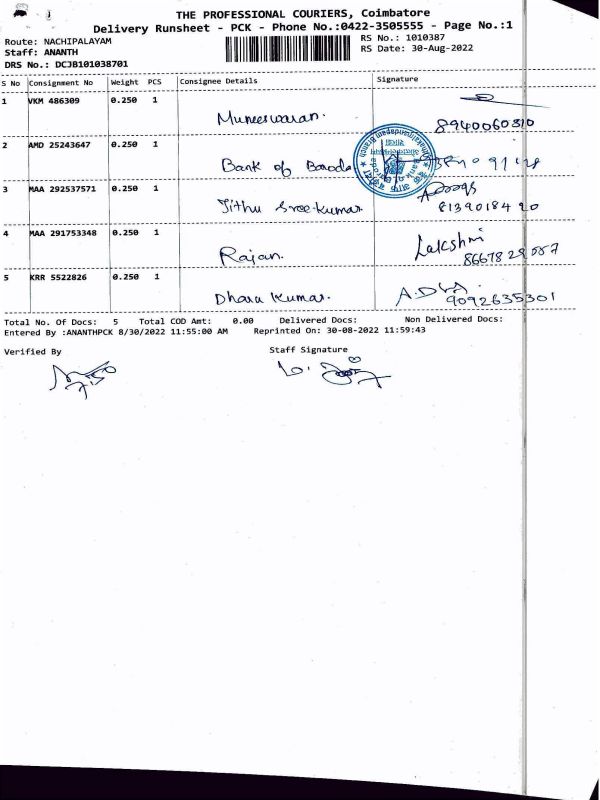 THE PROFESSIONAL COURIERS, Coimbatore
Delivery Runsheet - PCK - Phone No.:0422-3505555 - Page No.:1
Route: NACHIPALAYAM
Staff: ANANTH
DRS No.: DCJB101038701
RS No.: 1010387
RS Date: 30-Aug-2022
S No Consignment No Weight PCS Consignee Details Signature
1 VKM 486309 0.250 1 Muneeswaran. 8940060310
2 AMD 25243647 0.250 1 Bank of Baroda
3 MAA 292537571 0.250 1 Jithu Sreekumar 8139018420
4 MAA 291753348 0.250 1 Rajan. Lakshmi
5 KRR 5522826 0.250 1 Dhara Kumar. 9092635301
Total No. Of Docs: 5 Total COD Amt: 0.00 Delivered Docs: Non Delivered Docs:
Entered By :ANANTHPCK 8/30/2022 11:55:00 AM Reprinted On: 30-08-2022 11:59:43
Verified By Staff Signature